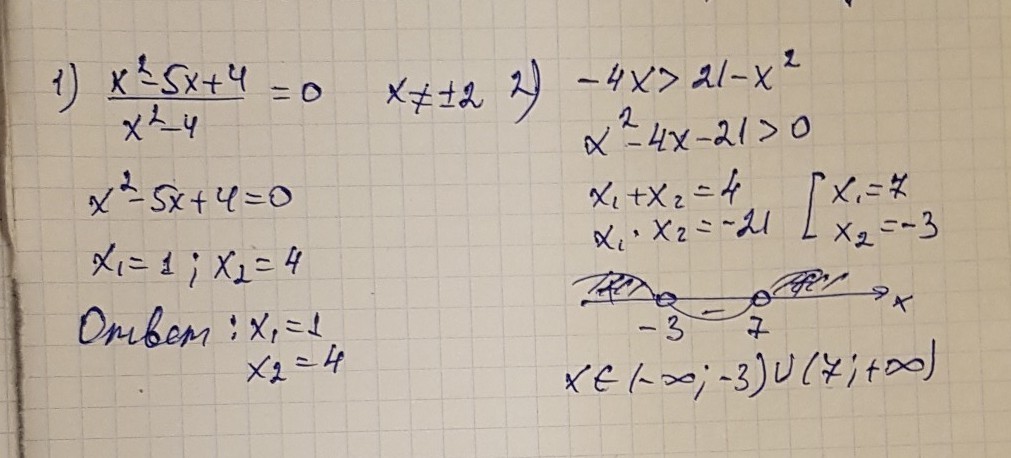 1) (x²-5x+4)/(x²-4) = 0  x≠±2
x²-5x+4=0
x₁=1; x₂=4
Ответ: x₁=1
x₂=4
2) -4x>21-x²
x²-4x-21>0
x₁+x₂=4
x₁·x₂=-21
[x₁=7
x₂=-3
-3 7 x
x∈(-∞;-3)∪(7;+∞)